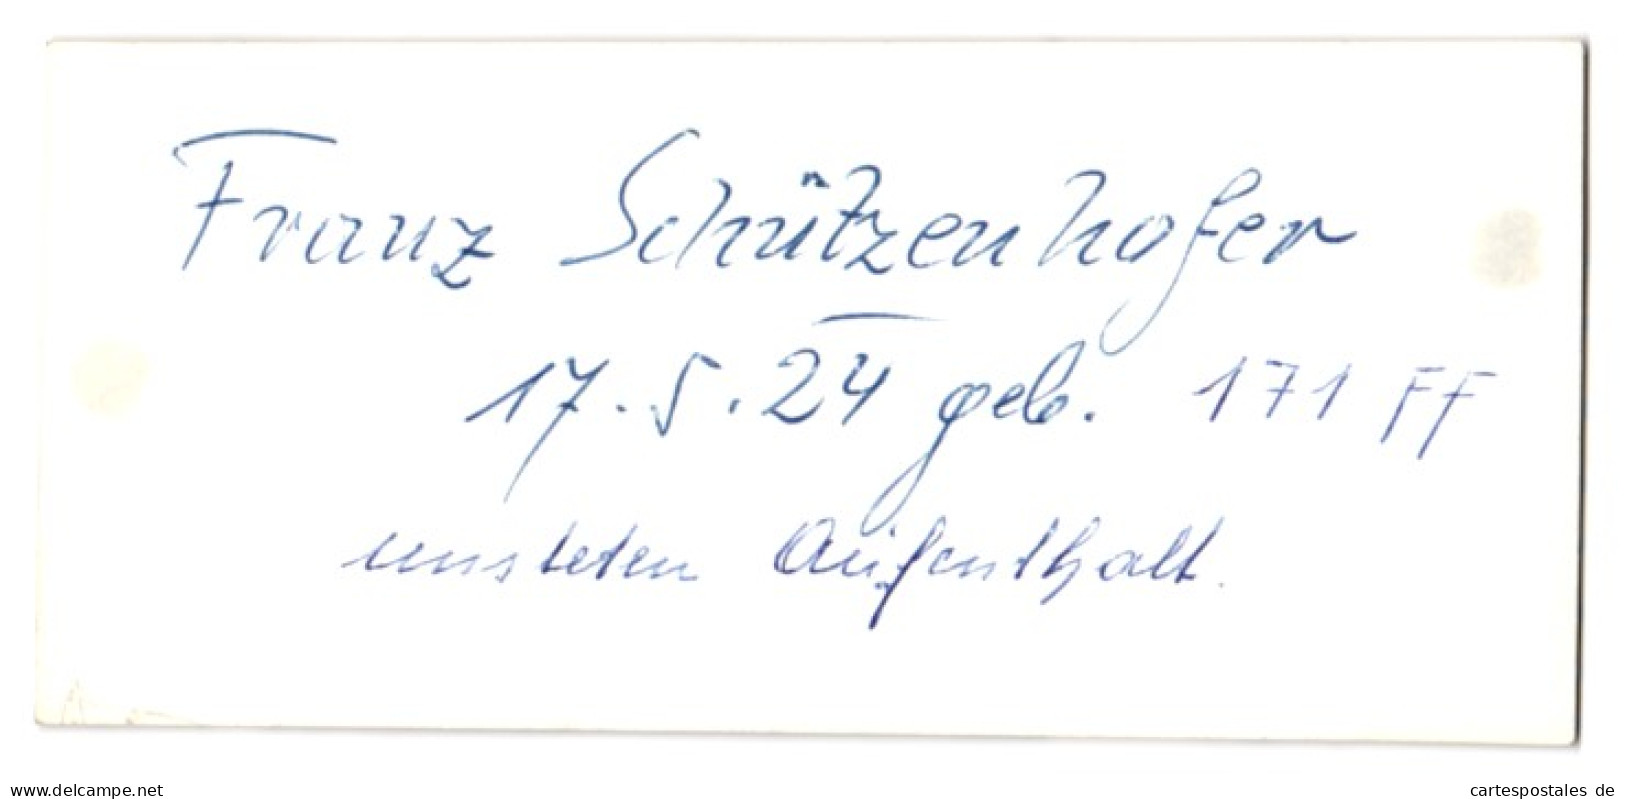 Franz Schützenhofer
17.5.24 geb. 171 FF
unsteten Aufenthalt.
www.delcampe.net
cartespostales de